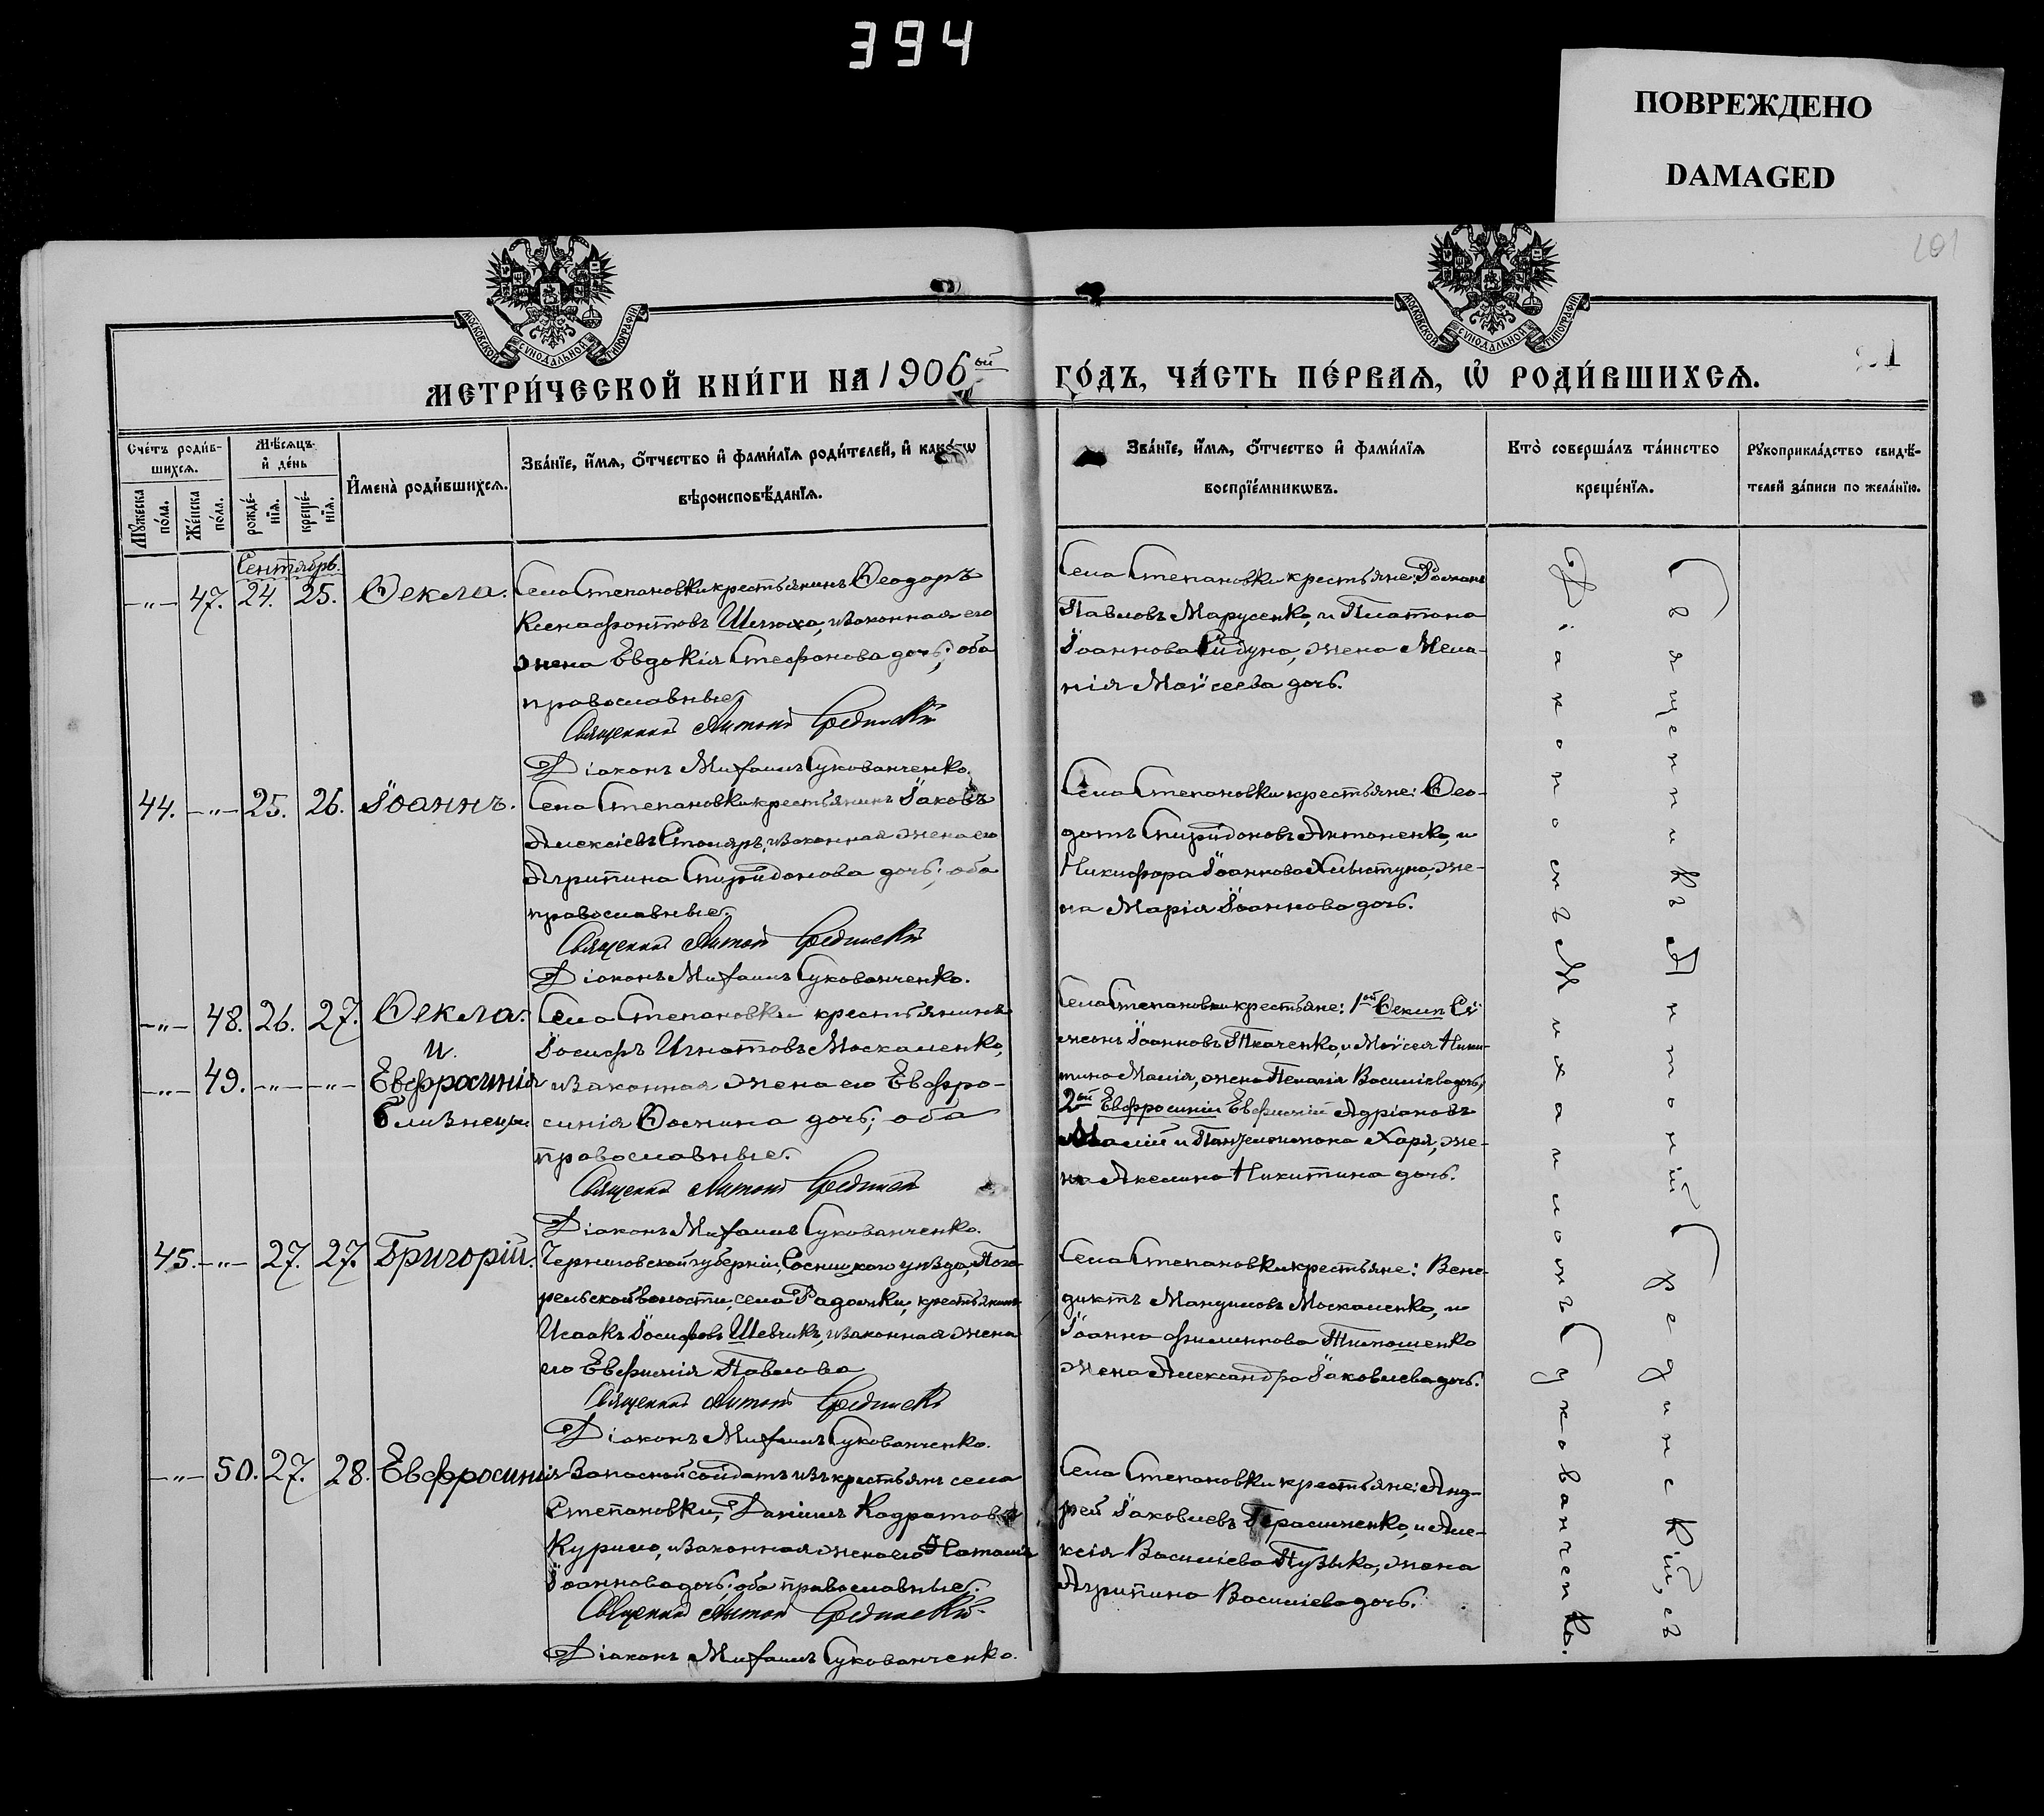 394
ПОВРЕЖДЕНО
DAMAGED
101
МОСКОВСКОЙ СУНОДАЛЬНОЙ ТИПОГРАФІИ
МОСКОВСКОЙ СУНОДАЛЬНОЙ ТИПОГРАФІИ
МЕТРИ́ЧЕСКОЙ КНИ́ГИ НА 1906ой ГО́ДЪ, ЧА́СТЬ ПЕ́РВАѦ, Ѡ РОДИ́ВШИХСѦ.
Сче́тъ роди́в-
шихсѧ.
Мѣ́сѧцъ
и де́нь
Имена̀ роди́вшихсѧ.
Зва́нїе, и́мѧ, о́тчество и фами́лїѧ роди́телей, и како́гѡ
вѣроисповѣ́данїѧ.
Му́жеска по́ла.
Же́нска по́ла.
рожде́-
нїѧ.
креще́-
нїѧ.
Зва́нїе, и́мѧ, о́тчество и фами́лїѧ
воспрїе́мникѡвъ.
Кто̀ соверша́лъ та́инство
креще́нїѧ.
Рꙋкоприкла́дство свидѣ́-
телей за́писи по жела́нїю.
Сентябрь.
-"- 47. 24. 25. Ѳекла.
Села Степановки крестьянинъ Ѳеодоръ
Ксенофонтовъ Шелюха, и законная его
жена Евдокія Стефанова дочь; оба
православные.
Священникъ Антоній Срединскій
Діаконъ Михаилъ Сукованченко.
Села Степановки крестьяне: Романъ
Павловъ Марусенко, и Платона
Іоаннова жена Мела-
нія Моѵсеева дочь.
44. -"- 25. 26. Іоаннъ.
Села Степановки крестьянинъ Іаковъ
Алексіевъ Столяръ, и законная жена его
Агрипина Спиридонова дочь; оба
православные.
Священникъ Антоній Срединскій
Діаконъ Михаилъ Сукованченко.
Села Степановки крестьяне: Ѳео-
дотъ Спиридоновъ Антоненко, и
Никифора Іоаннова Хлыстуна, же-
на Марія Іоаннова дочь.
-"- 48. 26. 27. Ѳекла.
и
-"- 49. -"- -"- Евфросинія
близнецы
Села Степановки крестьянинъ
Іосифъ Игнатовъ Москаленко,
и законная жена его Евфро-
синія Ѳомина дочь; оба
православные.
Священникъ Антоній Срединскій
Діаконъ Михаилъ Сукованченко.
Села Степановки крестьяне: 1ой Ѳеклы Сѵ-
меонъ Іоанновъ Ткаченко, и Моѵсея Ники-
тина Малія, жена Пелагія Василіева дочь,
2ой Евфросиніи Евфимій Адріановъ
Малій и Пантелеимона Харя, же-
на Акелина Никитина дочь.
45. -"- 27. 27. Григорій.
Черниговской губерніи, Сосницкаго уѣзда, Пого-
рельской волости, села Радомки, крестьянинъ
Исаакъ Іосифовъ Шевчикъ, и законная жена
его Евфимія Павлова
Священникъ Антоній Срединскій
Діаконъ Михаилъ Сукованченко.
Села Степановки крестьяне: Вене-
диктъ Москаленко, и
Іоанна Филиппова Тимошенко
жена Александра Іаковлева дочь.
-"- 50. 27. 28. Евфросинія
Запасной солдатъ изъ крестьянъ села
Степановки, Даніилъ Кодратовъ
Курило, и законная жена его Наталія
Іоаннова дочь; оба православные.
Священникъ Антоній Срединскій
Діаконъ Михаилъ Сукованченко.
Села Степановки крестьяне: Анд-
рей Іаковлевъ Герасименко, и Але-
ксія Василіева Пузыко, жена
Агрипина Василіева дочь.
Священникъ Антоній Срединскій, съ
Діакономъ Михаиломъ Сукованченко.